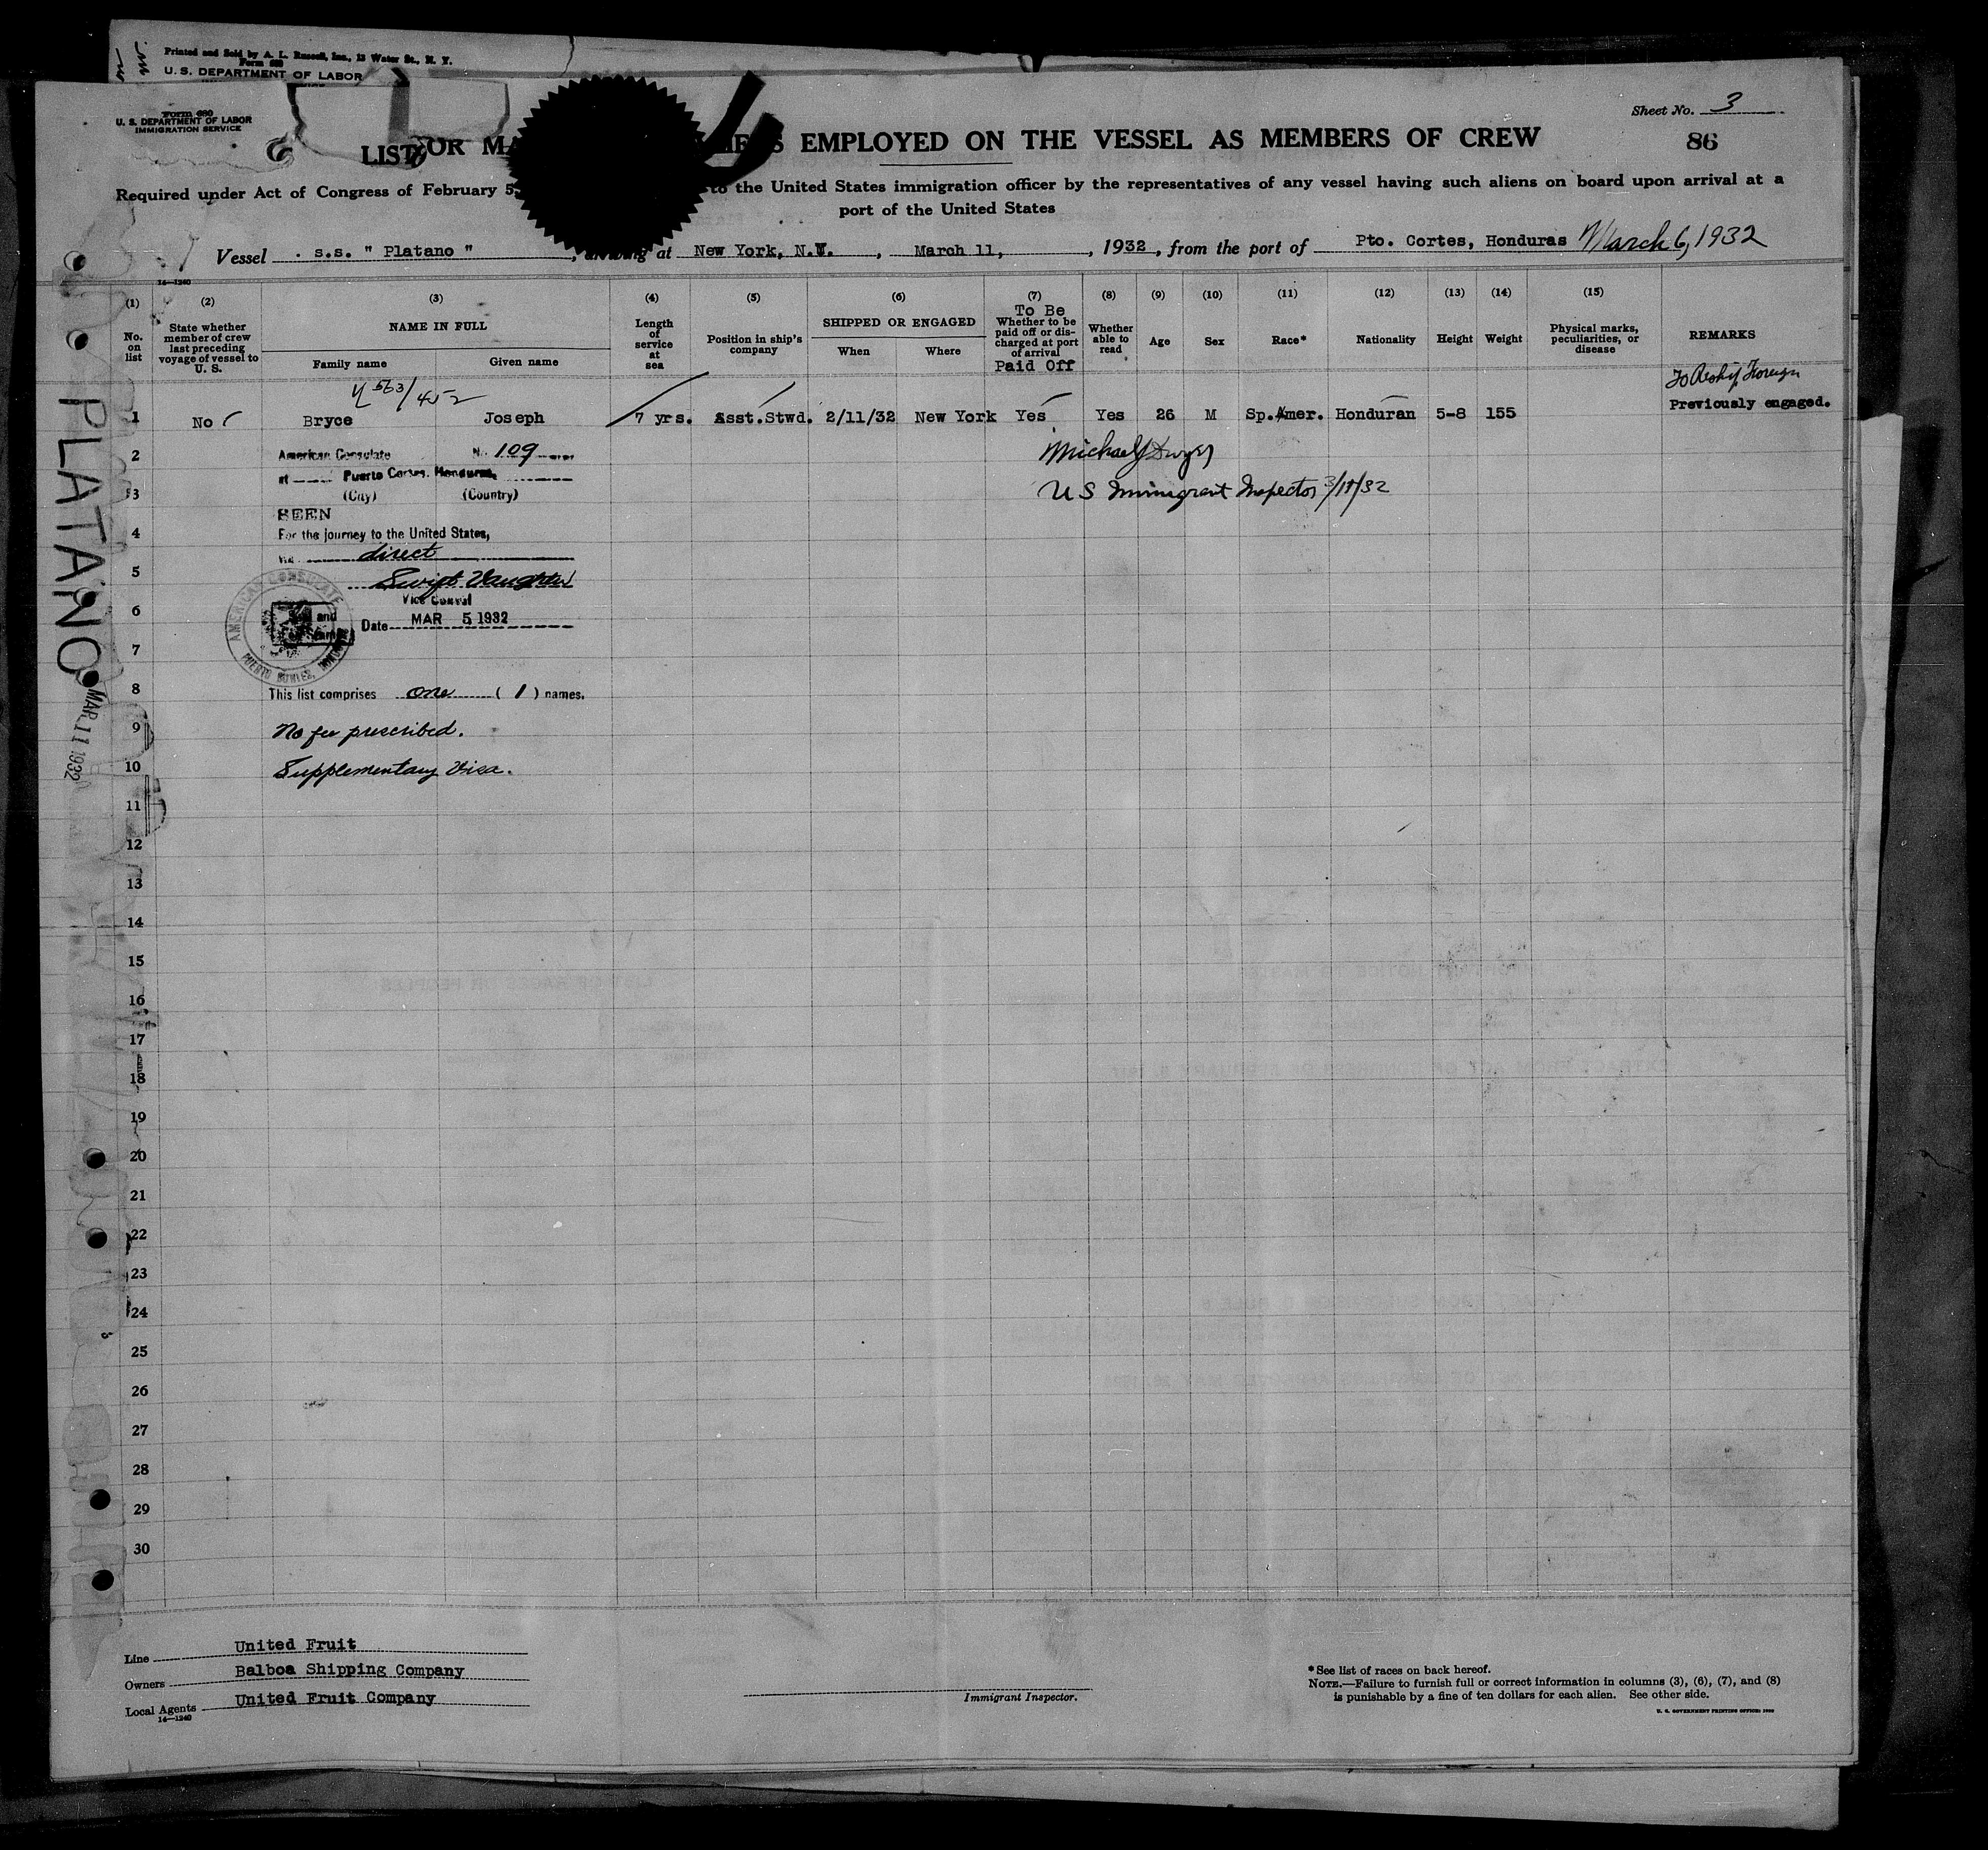 Printed and Sold by A. L. Russell, Inc., 13 Water St., N. Y.
Form 680
U. S. DEPARTMENT OF LABOR
Form 680
U. S. DEPARTMENT OF LABOR
IMMIGRATION SERVICE
Sheet No. 3
86
LIST OR MA EMPLOYED ON THE VESSEL AS MEMBERS OF CREW
Required under Act of Congress of February 5, to the United States immigration officer by the representatives of any vessel having such aliens on board upon arrival at a
port of the United States
Vessel s.s. " Platano ", arriving at New York, N.Y., March 11, , 1932, from the port of Pto. Cortes, Honduras March 6, 1932
14—1240
(1) (2) (3) (4) (5) (6) (7) (8) (9) (10) (11) (12) (13) (14) (15)
No. on list
State whether member of crew last preceding voyage of vessel to U. S.
NAME IN FULL
Family name Given name
Length of service at sea
Position in ship's company
SHIPPED OR ENGAGED
When Where
To Be
Whether to be paid off or discharged at port of arrival
Paid Off
Whether able to read
Age
Sex
Race*
Nationality
Height
Weight
Physical marks, peculiarities, or disease
REMARKS
563/452
To Reship Foreign
1 No Bryce Joseph 7 yrs. Asst.Stwd. 2/11/32 New York Yes Yes 26 M Sp.Amer. Honduran 5-8 155 Previously engaged.
2
American Consulate No. 109
Michael J Dwyer
at Puerto Cortes, Honduras,
3
(City) (Country)
U S Immigrant Inspector 3/11/32
SEEN
4
For the journey to the United States,
via direct
5
Vaughter
Vice Consul
6
Date MAR 5 1932
AMERICAN CONSULATE
PUERTO CORTES, HONDURAS
7
8
This list comprises one ( 1 ) names.
9
No fee prescribed.
10
Supplementary Visa.
11
12
13
14
15
16
17
18
19
20
21
22
23
24
25
26
27
28
29
30
PLATANO
MAR 11 1932
Line United Fruit
Owners Balboa Shipping Company
Local Agents United Fruit Company
14—1240
Immigrant Inspector.
*See list of races on back hereof.
NOTE.—Failure to furnish full or correct information in columns (3), (6), (7), and (8)
is punishable by a fine of ten dollars for each alien. See other side.